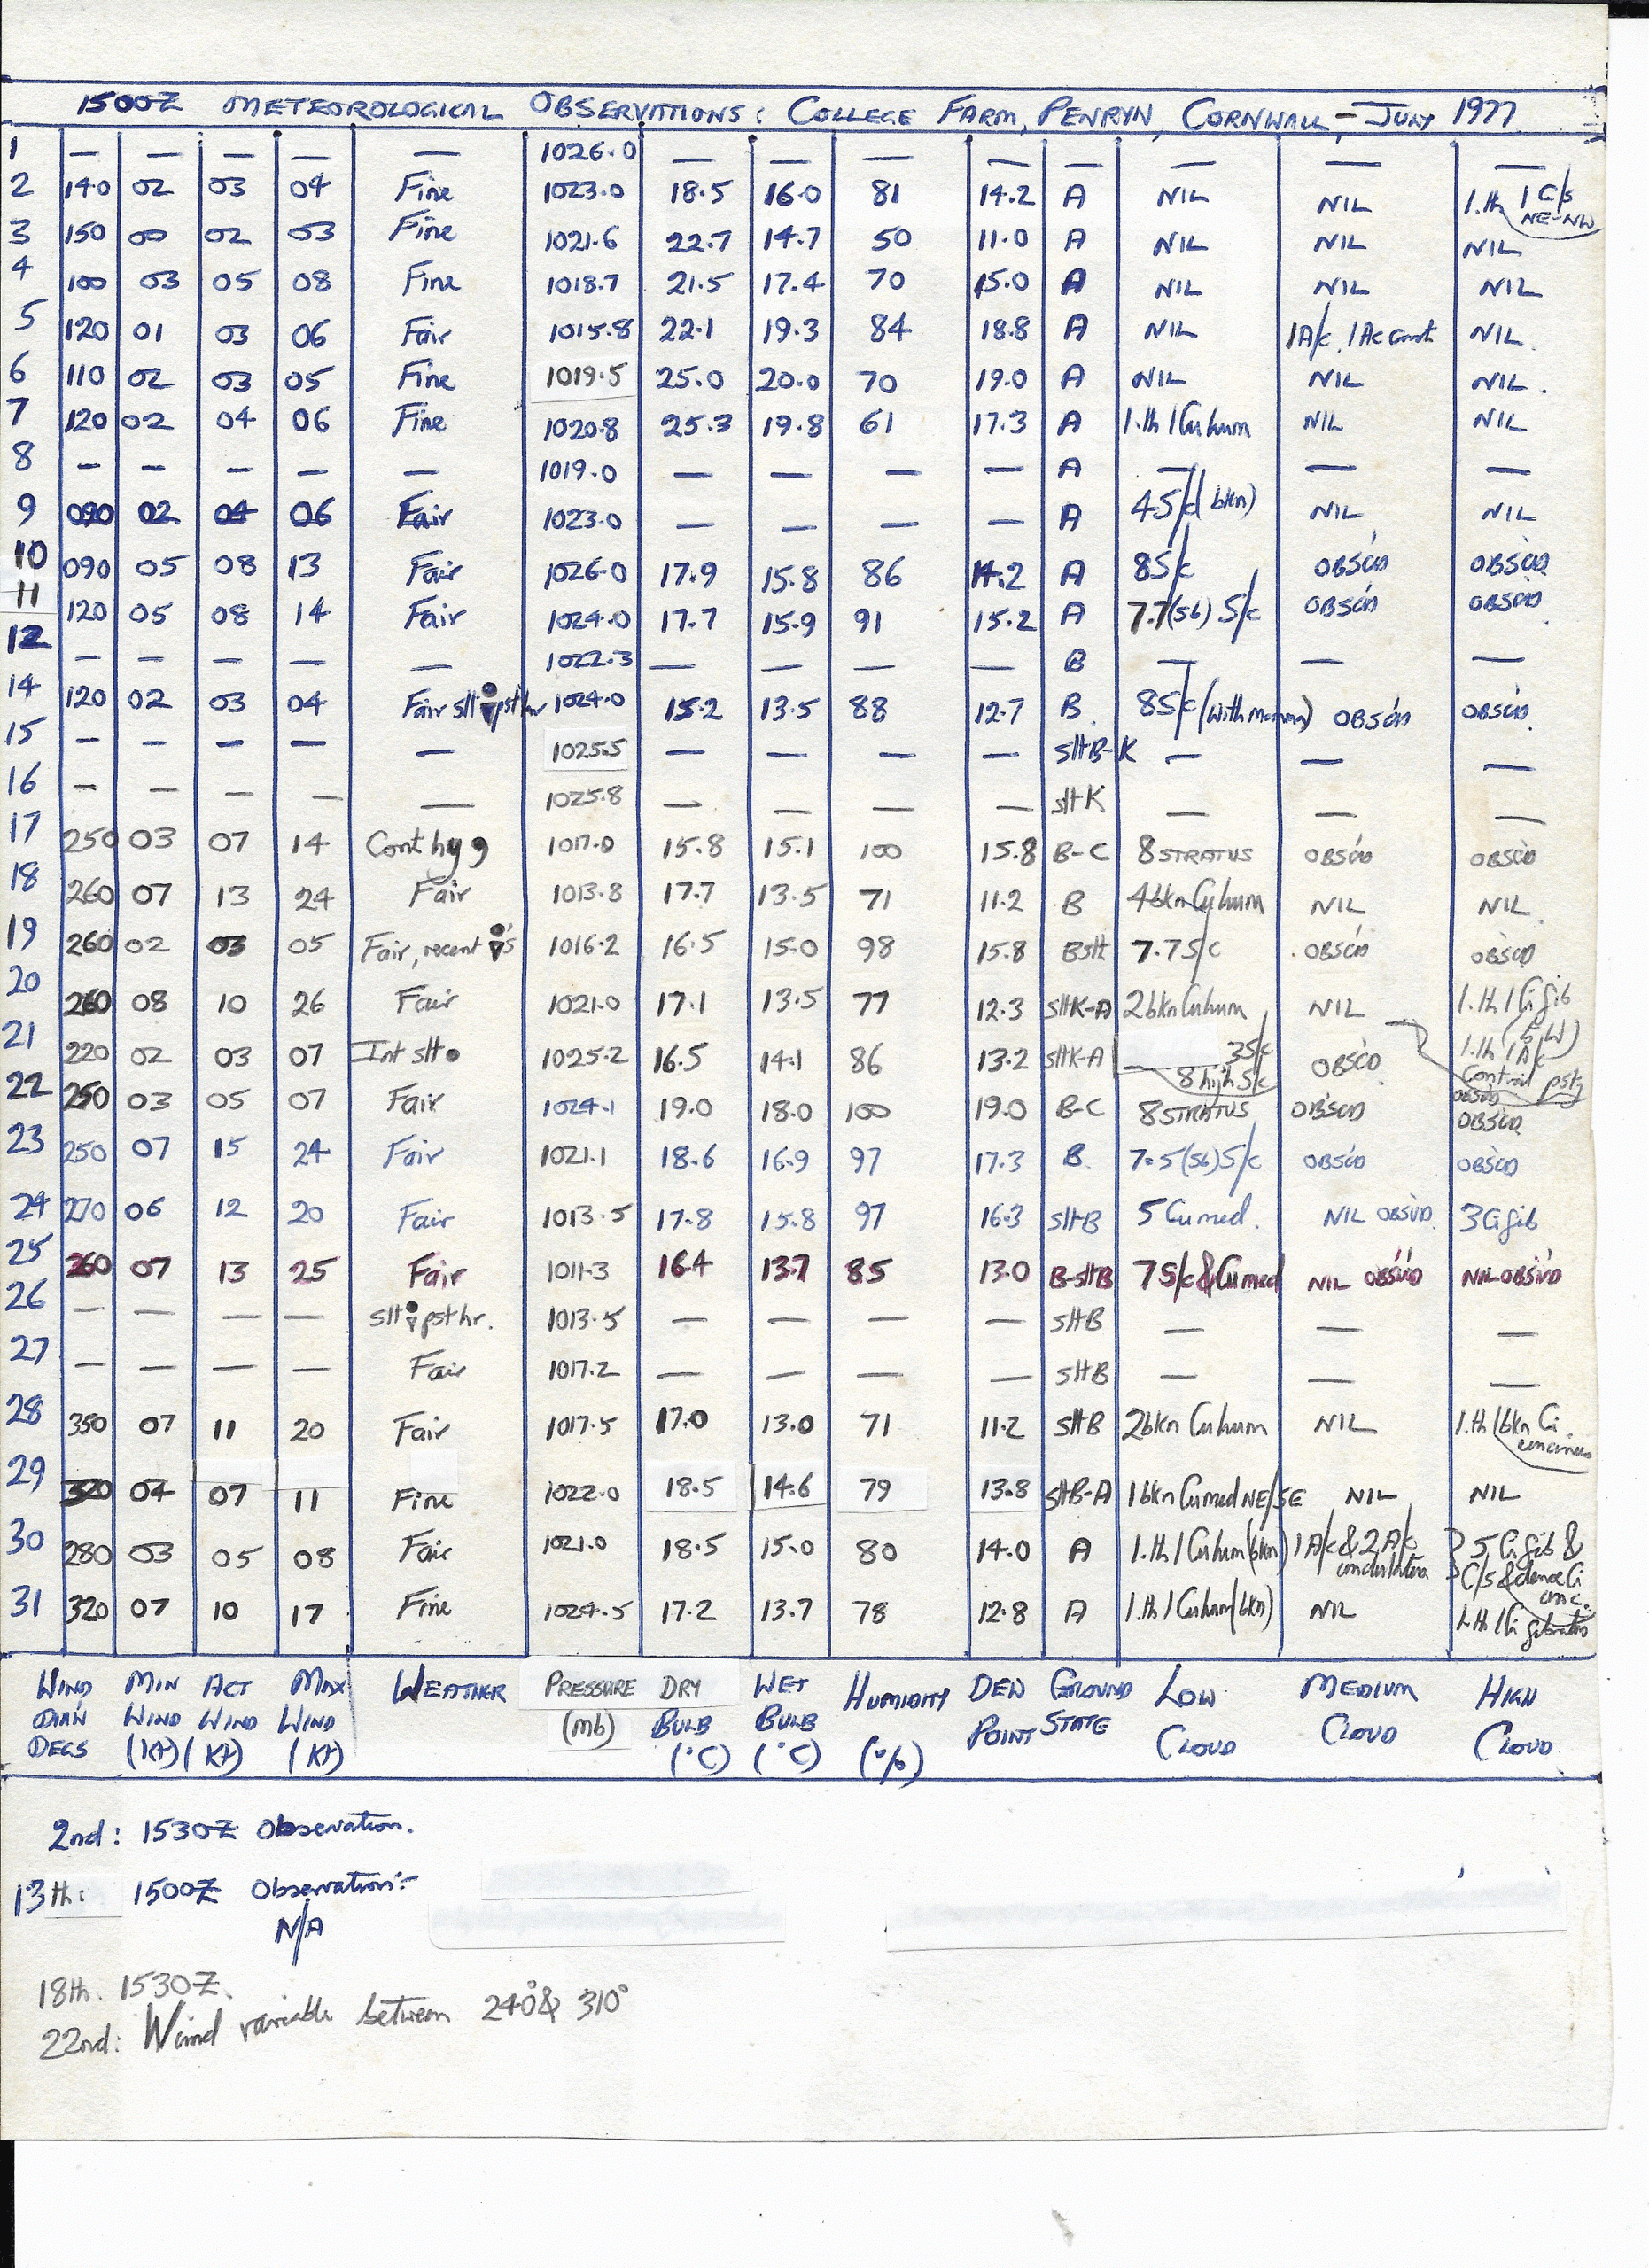 1500Z METEOROLOGICAL OBSERVATIONS: COLLEGE FARM, PENRYN, CORNWALL - JULY 1977
1 — — — — — 1026.0 — — — — — — — —
2 140 02 03 04 Fine 1023.0 18.5 16.0 81 14.2 A NIL NIL 1.th 1 C/s NE-NW
3 150 00 02 03 Fine 1021.6 22.7 14.7 50 11.0 A NIL NIL NIL
4 100 03 05 08 Fine 1018.7 21.5 17.4 70 15.0 A NIL NIL NIL
5 120 01 03 06 Fair 1015.8 22.1 19.3 84 18.8 A NIL 1A/c, 1Ac cast NIL.
6 110 02 03 05 Fine 1019.5 25.0 20.0 70 19.0 A NIL NIL NIL.
7 120 02 04 06 Fine 1020.8 25.3 19.8 61 17.3 A 1.th 1Cu hum NIL NIL
8 — — — — — 1019.0 — — — — A — — —
9 090 02 04 06 Fair 1023.0 — — — — A 4S/c (bkn) NIL NIL
10 090 05 08 13 Fair 1026.0 17.9 15.8 86 14.2 A 8S/c OBSC'D OBSC'D
11 120 05 08 14 Fair 1024.0 17.7 15.9 91 15.2 A 7.7(S6) S/c OBSC'D OBSC'D.
12 — — — — — 1022.3 — — — — B — — —
14 120 02 03 04 Fair slt pst hr 1024.0 15.2 13.5 88 12.7 B. 8S/c (with mamma) OBSC'D OBSC'D.
15 — — — — — 1025.5 — — — — SltB-K — — —
16 — — — — — 1025.8 — — — — sltK — — —
17 250 03 07 14 Cont hy 9 1017.0 15.8 15.1 100 15.8 B-C 8 STRATUS OBSC'D OBSC'D
18 260 07 13 24 Fair 1013.8 17.7 13.5 71 11.2 B 4bkn Cu hum NIL NIL.
19 260 02 03 05 Fair, recent 's 1016.2 16.5 15.0 98 15.8 Bslt 7.7 S/c OBSC'D OBSC'D
20 260 08 10 26 Fair 1021.0 17.1 13.5 77 12.3 sltK-A 2bkn Cu hum NIL 1.th 1 Ci fib (SW)
21 220 02 03 07 Int slt 1025.2 16.5 14.1 86 13.2 sltK-A 3S/c 8 high S/c OBSC'D 1.th 1 A/c Contrail pstg OBSC'D
22 250 03 05 07 Fair 1024.1 19.0 18.0 100 19.0 B-C 8 STRATUS OBSC'D OBSC'D
23 250 07 15 24 Fair 1021.1 18.6 16.9 97 17.3 B. 7.5(S6) S/c OBSC'D OBSC'D
24 270 06 12 20 Fair 1013.5 17.8 15.8 97 16.3 sltB 5 Cu med. NIL OBSV'D. 3 Ci fib
25 260 07 13 25 Fair 1011.3 16.4 13.7 85 13.0 B-sltB 7 S/c & Cu med NIL OBSV'D NIL OBSV'D
26 — — — — slt pst hr. 1013.5 — — — — sltB — — —
27 — — — — Fair 1017.2 — — — — sltB — — —
28 350 07 11 20 Fair 1017.5 17.0 13.0 71 11.2 sltB 2bkn Cu hum NIL 1.th 1bkn Ci.
29 320 04 07 11 Fine 1022.0 18.5 14.6 79 13.8 sltB-A 1bkn Cu med NE/SE NIL NIL
30 280 03 05 08 Fair 1021.0 18.5 15.0 80 14.0 A 1.th 1 Cu hum (bkn) 1A/c & 2 A/c undulatus 5 Ci fib & C/s & dense Ci conc.
31 320 07 10 17 Fine 1024.5 17.2 13.7 78 12.8 A 1.th 1 Cu hum (bkn) NIL 1.th 1 Ci fibratus
WIND DIR'N DEGS MIN WIND (Kt) ACT WIND (Kt) MAX WIND (Kt) WEATHER PRESSURE (mb) DRY BULB (°C) WET BULB (°C) HUMIDITY (%) DEW POINT GROUND STATE LOW CLOUD MEDIUM CLOUD HIGH CLOUD
2nd: 1530Z Observation.
13th: 1500Z Observation:-
N/A
18th. 1530Z.
22nd: Wind variable between 240° & 310°